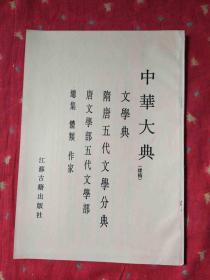 中華大典（樣稿）
文學典
隋唐五代文學分典
唐文學部五代文學部
總集 體類 作家
江蘇古籍出版社